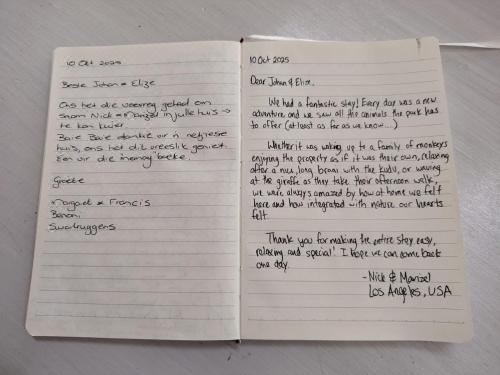 10 Okt 2025
Beste Johan & Elize
Ons het die voorreg gehad om
saam Nick & Marizel in julle huis
te kon kuier.
Baie Baie dankie vir 'n netjiese
huis, ons het dit vreeslik geniet.
En vir die
Groete
Margaret & Francis
Benoni
Swartruggens
10 Oct 2025
Dear Johan & Elize,
We had a fantastic stay! Every day was a new
adventure and we saw all the animals the park has
to offer (at least as far as we know...)
Whether it was waking up to a family of monkeys
enjoying the property as if it was their own, relaxing
after a nice, long braai with the kudu, or waving
at the giraffe as they take their afternoon walk,
we were always amazed by how at home we felt
here and how integrated with nature our hearts
felt.
Thank you for making the entire stay easy,
relaxing and special! I hope we can come back
one day.
- Nick & Marizel
Los Angeles, USA